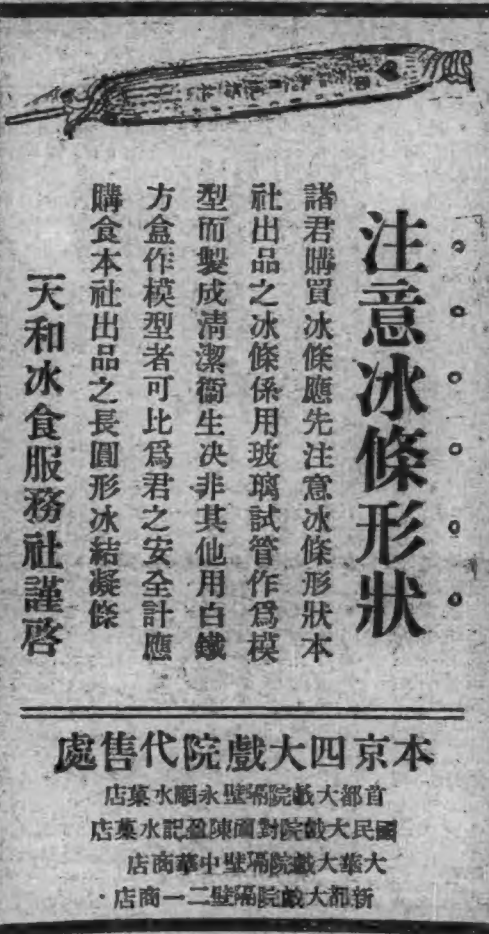 注意冰條形狀
諸君購買冰條應先注意冰條形狀本
社出品之冰條係用玻璃試管作爲模
型而製成清潔衞生决非其他用白鐵
方盒作模型者可比爲君之安全計應
購食本社出品之長圓形冰結凝條
天和冰食服務社謹啓
本京四大戲院代售處
首都大戲院隔壁永順水菓店
國民大戲院對面陳盈記水菓店
大華大戲院隔壁中華商店
新都大戲院隔壁二一商店．